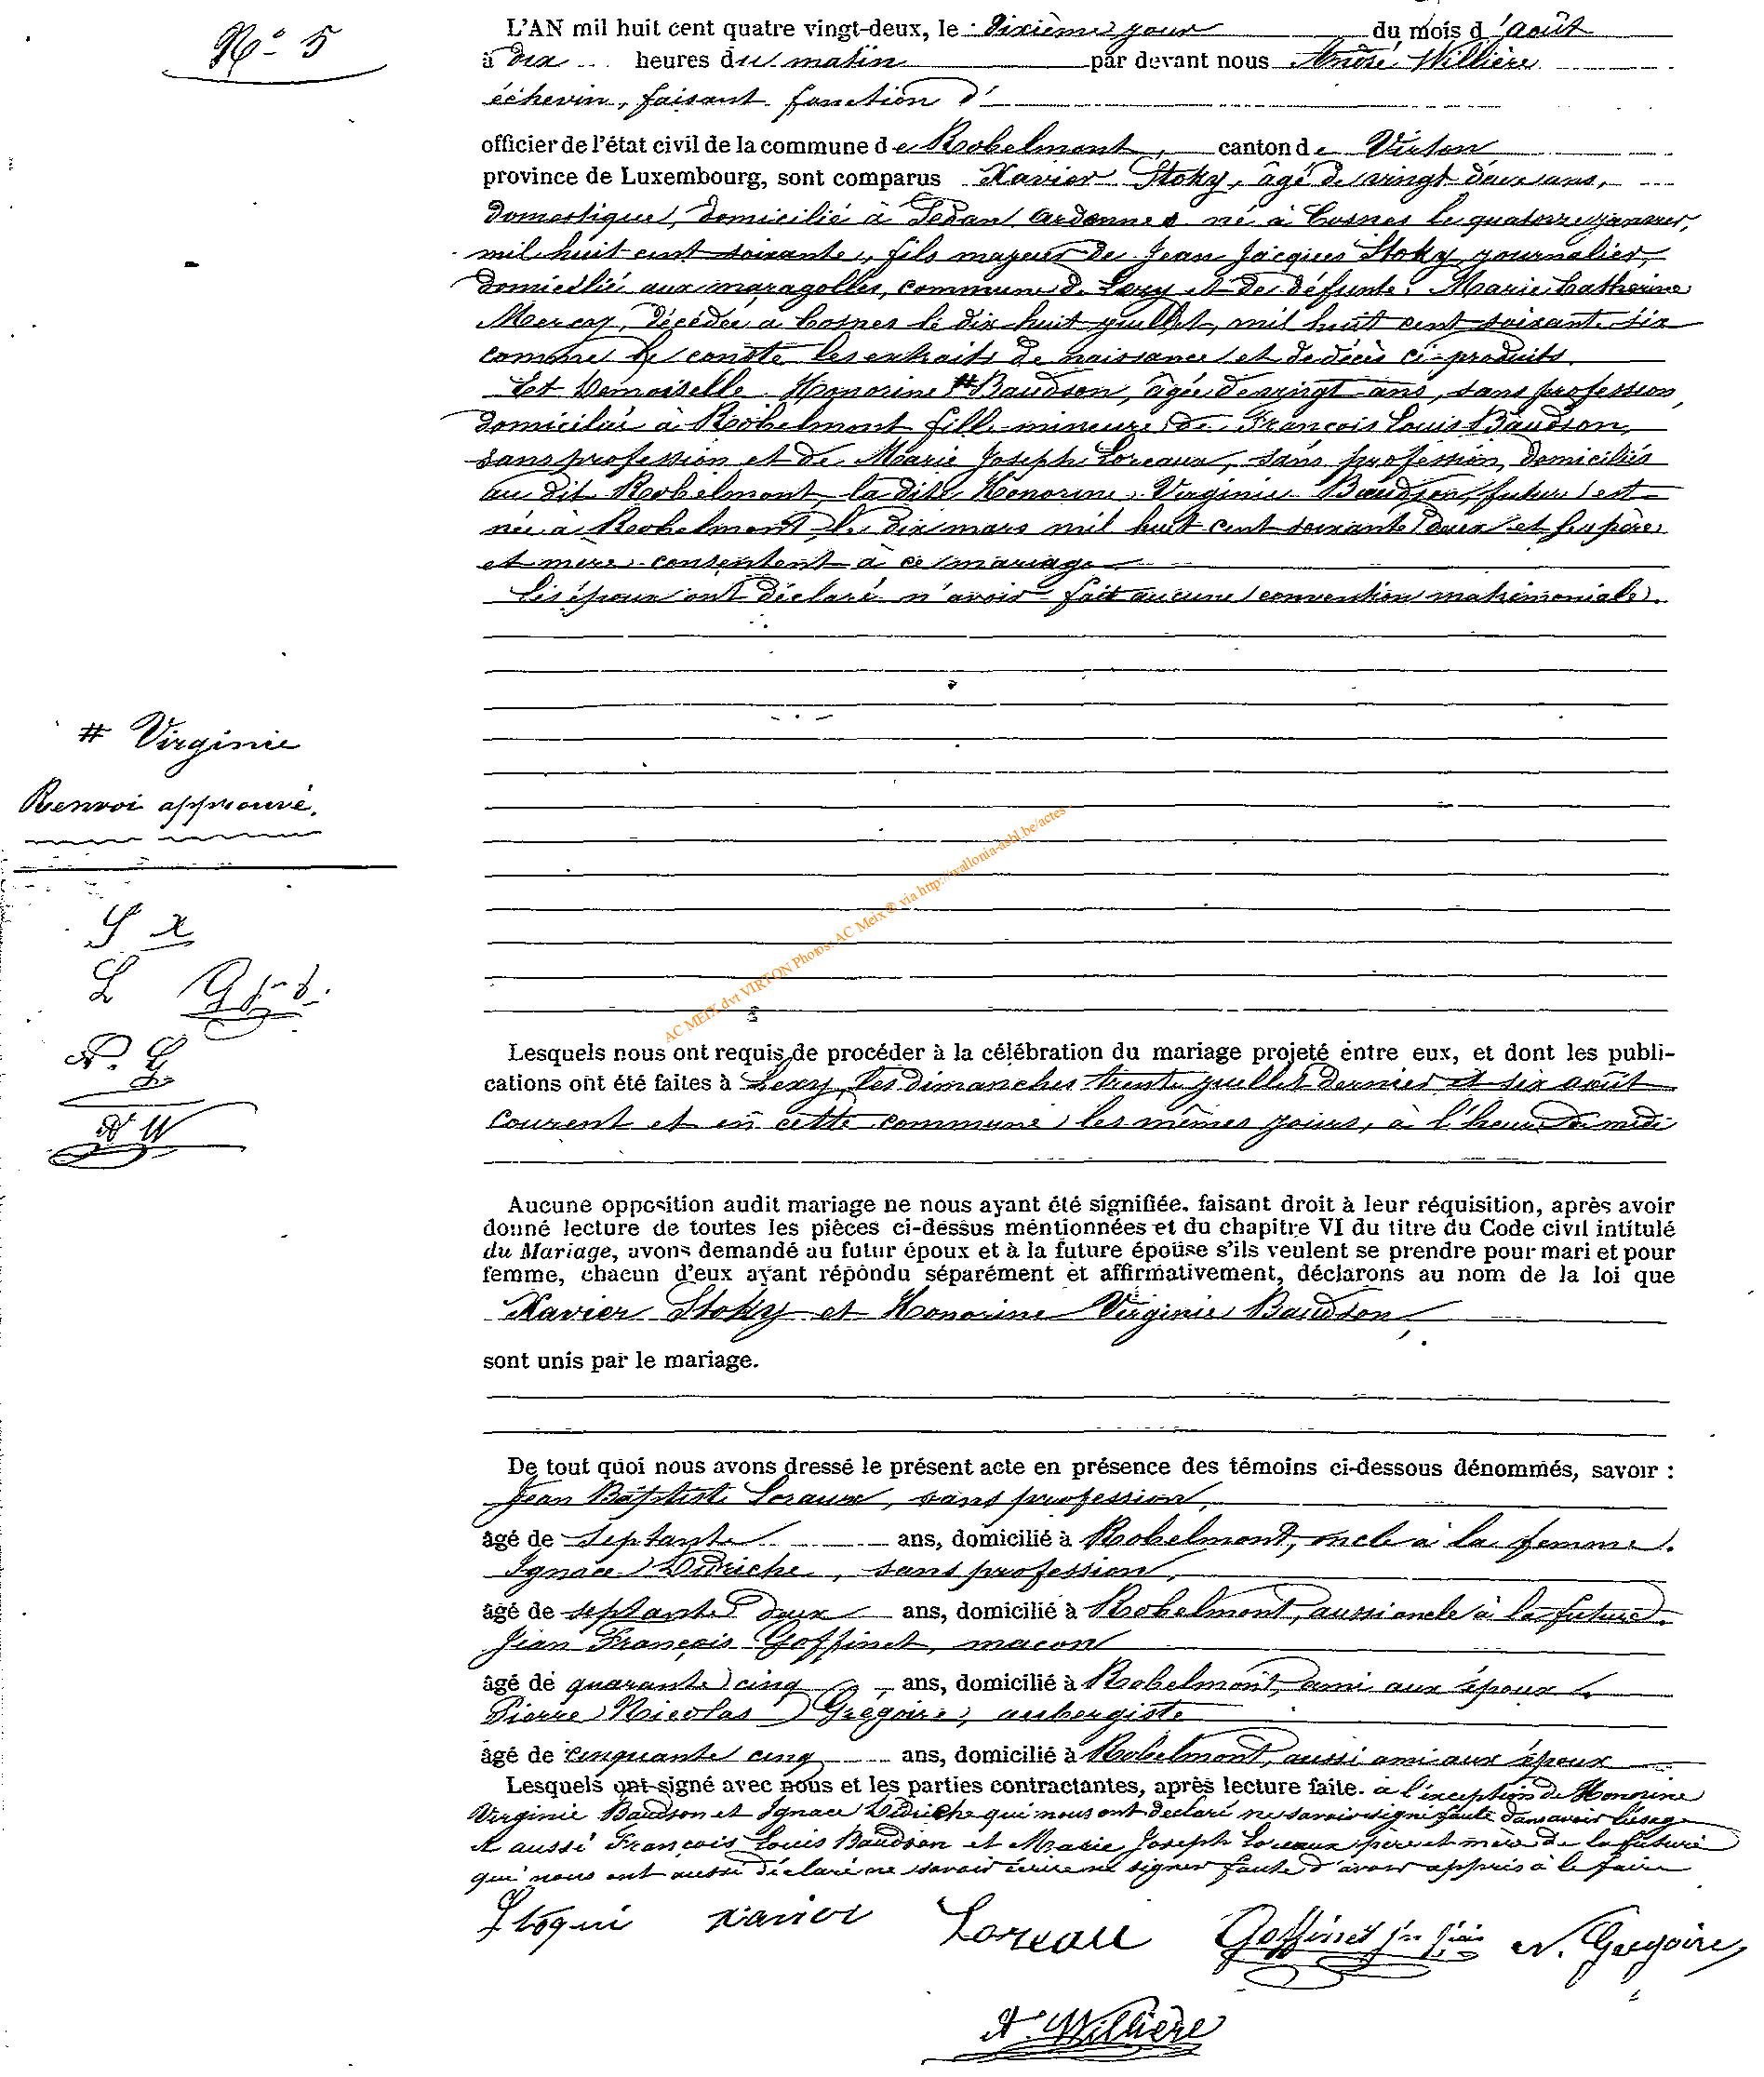 N° 5
L'AN mil huit cent quatre vingt-deux, le dixième jour du mois d'août
à dix heures du matin par devant nous André Willière
échevin, faisant fonction d'
officier de l'état civil de la commune de Robelmont, canton de Virton
province de Luxembourg, sont comparus Xavier Stoky, âgé de vingt deux ans,
domestique, domicilié à Sedan Ardennes né à Cosnes le quatorze janvier,
mil huit cent soixante, fils majeur de Jean Jacques Stoky journalier,
domicilié aux maragolles, commune de Lexy et de défunte Marie Catherine
décédée à Cosnes le dix huit juillet, mil huit cent soixante six
comme le conste les extraits de naissance et de décès ci-produits.
Et Demoiselle Honorine # Baudson, âgée de vingt ans, sans profession,
domiciliée à Robelmont fille mineure de François Louis Baudson,
sans profession et de Marie Joseph Loreaux, sans profession, domiciliés
au dit Robelmont, la dite Honorine Virginie Baudson, future est
née à Robelmont le dix mars mil huit cent soixante deux et ses père
et mère consentent à ce mariage
Les époux ont déclaré n'avoir fait aucune convention matrimoniale.
# Virginie
Renvoi approuvé.
S x
L G j-f.
N. G
A W
AC MEIX dvt VIRTON Photos: AC Meix © via http://wallonia-asbl.be/actes
Lesquels nous ont requis de procéder à la célébration du mariage projeté entre eux, et dont les publi-
cations ont été faites à Lexy, les dimanches trente juillet dernier et six août
courent et en cette commune les mêmes jours, à l'heure de midi
Aucune opposition audit mariage ne nous ayant été signifiée. faisant droit à leur réquisition, après avoir
donné lecture de toutes les pièces ci-dessus mentionnées et du chapitre VI du titre du Code civil intitulé
du Mariage, avons demandé au futur époux et à la future épouse s'ils veulent se prendre pour mari et pour
femme, chacun d'eux ayant répondu séparément et affirmativement, déclarons au nom de la loi que
Xavier Stoky et Honorine Virginie Baudson,
sont unis par le mariage.
De tout quoi nous avons dressé le présent acte en présence des témoins ci-dessous dénommés, savoir :
Jean Baptiste Loraux, sans profession,
âgé de septante ans, domicilié à Robelmont, oncle à la femme.
Ignace Didriche, sans profession,
âgé de septante deux ans, domicilié à Robelmont, aussi oncle à la future.
Jean François Goffinet, macon
âgé de quarante cinq ans, domicilié à Robelmont, ami aux époux.
Pierre Nicolas Grégoire, aubergiste
âgé de cinquante cinq ans, domicilié à Robelmont, aussi ami aux époux
Lesquels ont signé avec nous et les parties contractantes, après lecture faite. à l'exception de Honorine
Virginie Baudson et Ignace Didriche qui nous ont déclaré ne savoir signé faute d'en avoir l'usage
et aussi François Louis Baudson et Marie Joseph Loreaux père et mère de la future
qui nous ont aussi déclaré ne savoir écrire ne signer faute d'avoir appris à le faire
Stoqui xavier Loreau Goffinet N. Gregoire
A. Willière